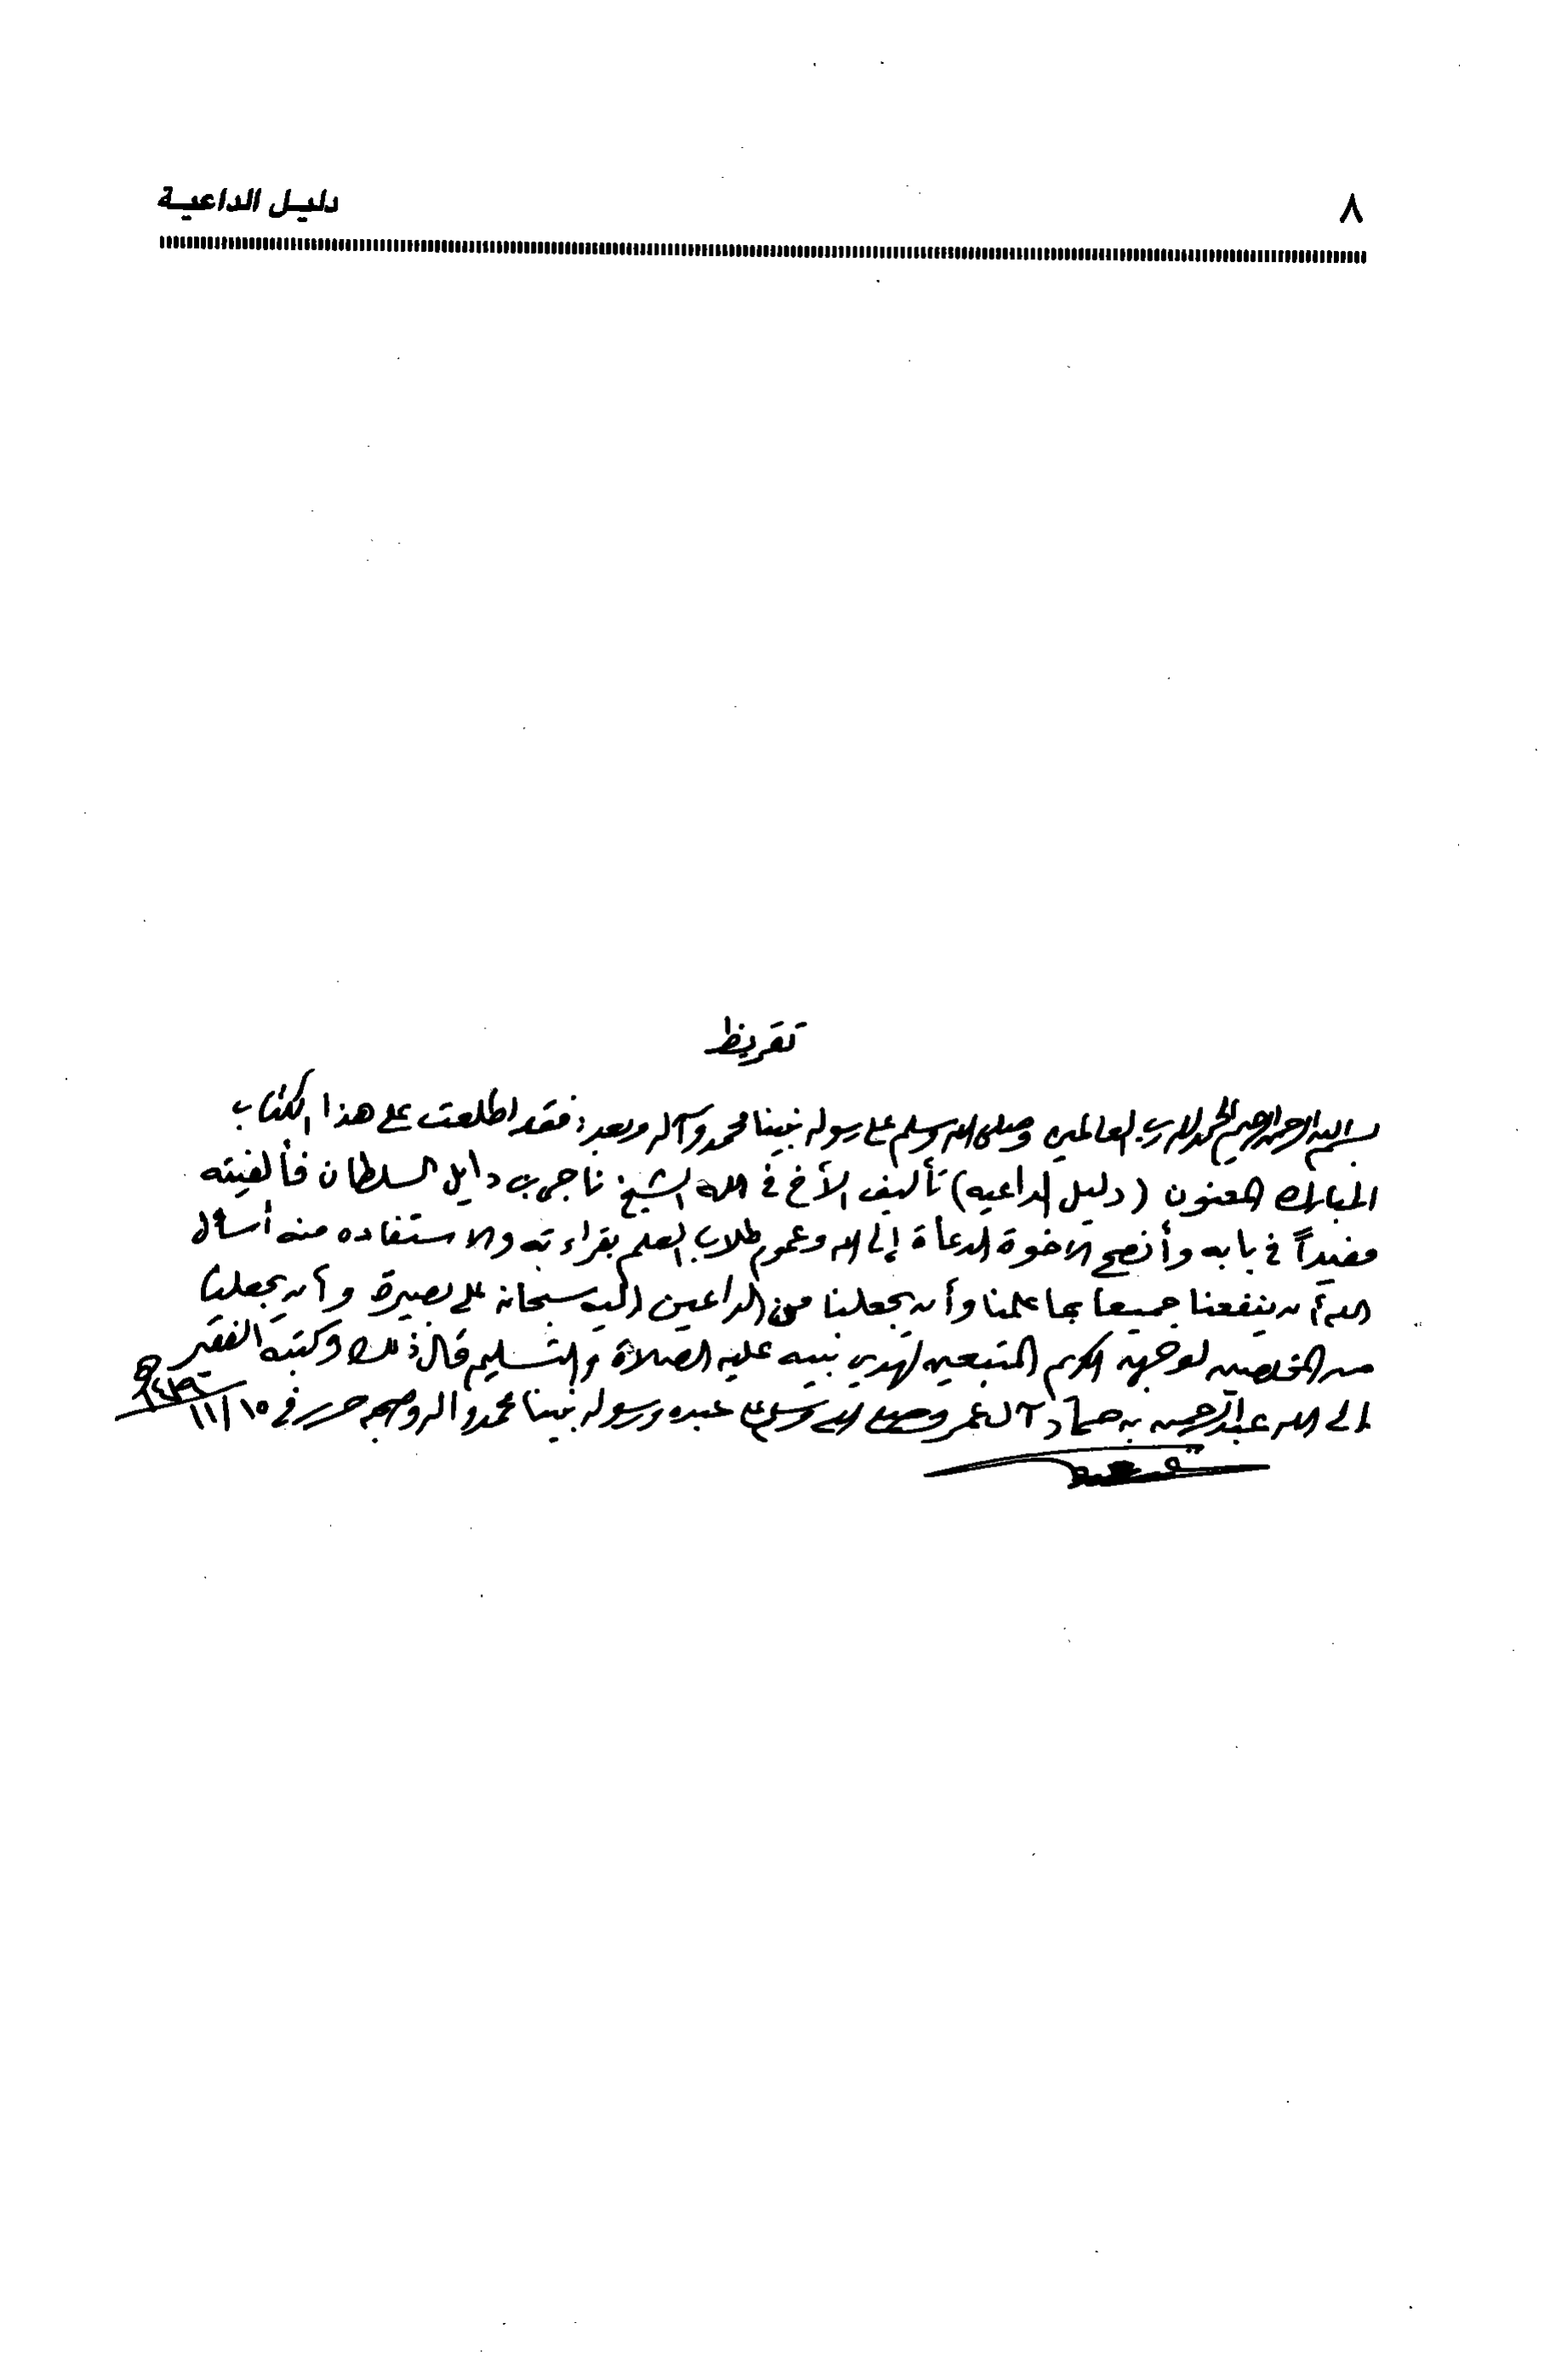 ٨
دليل الداعية
تقريظ
بسم الله الرحمن الرحيم الحمد لله رب العالمين وصلى الله وسلم على رسوله نبينا محمد وآله وبعد: فقد اطلعت على هذا الكتاب
المبارك المعنون (دليل الداعيه) تأليف الأخ في الله الشيخ ناجي بن دايل السلطان فألفيته
مفيداً في بابه وأنصح الاخوة الدعاة إلى الله وعموم طلاب العلم بقراءته والاستفاده منه أسأل
الله أن ينفعنا جميعا بما علمنا وأن يجعلنا من الداعين إليه سبحانه على بصيرة وأن يجعلنا
من المخلصين لوجهه الكريم المتبعين لهدي نبيه عليه الصلاة والتسليم قال ذلك وكتبه الفقير
إلى الله عبدالرحمن بن حماد آل عمر وصلى الله وسلم على عبده ورسوله نبينا محمد وآله وصحبه حرر في ١٥/١١/